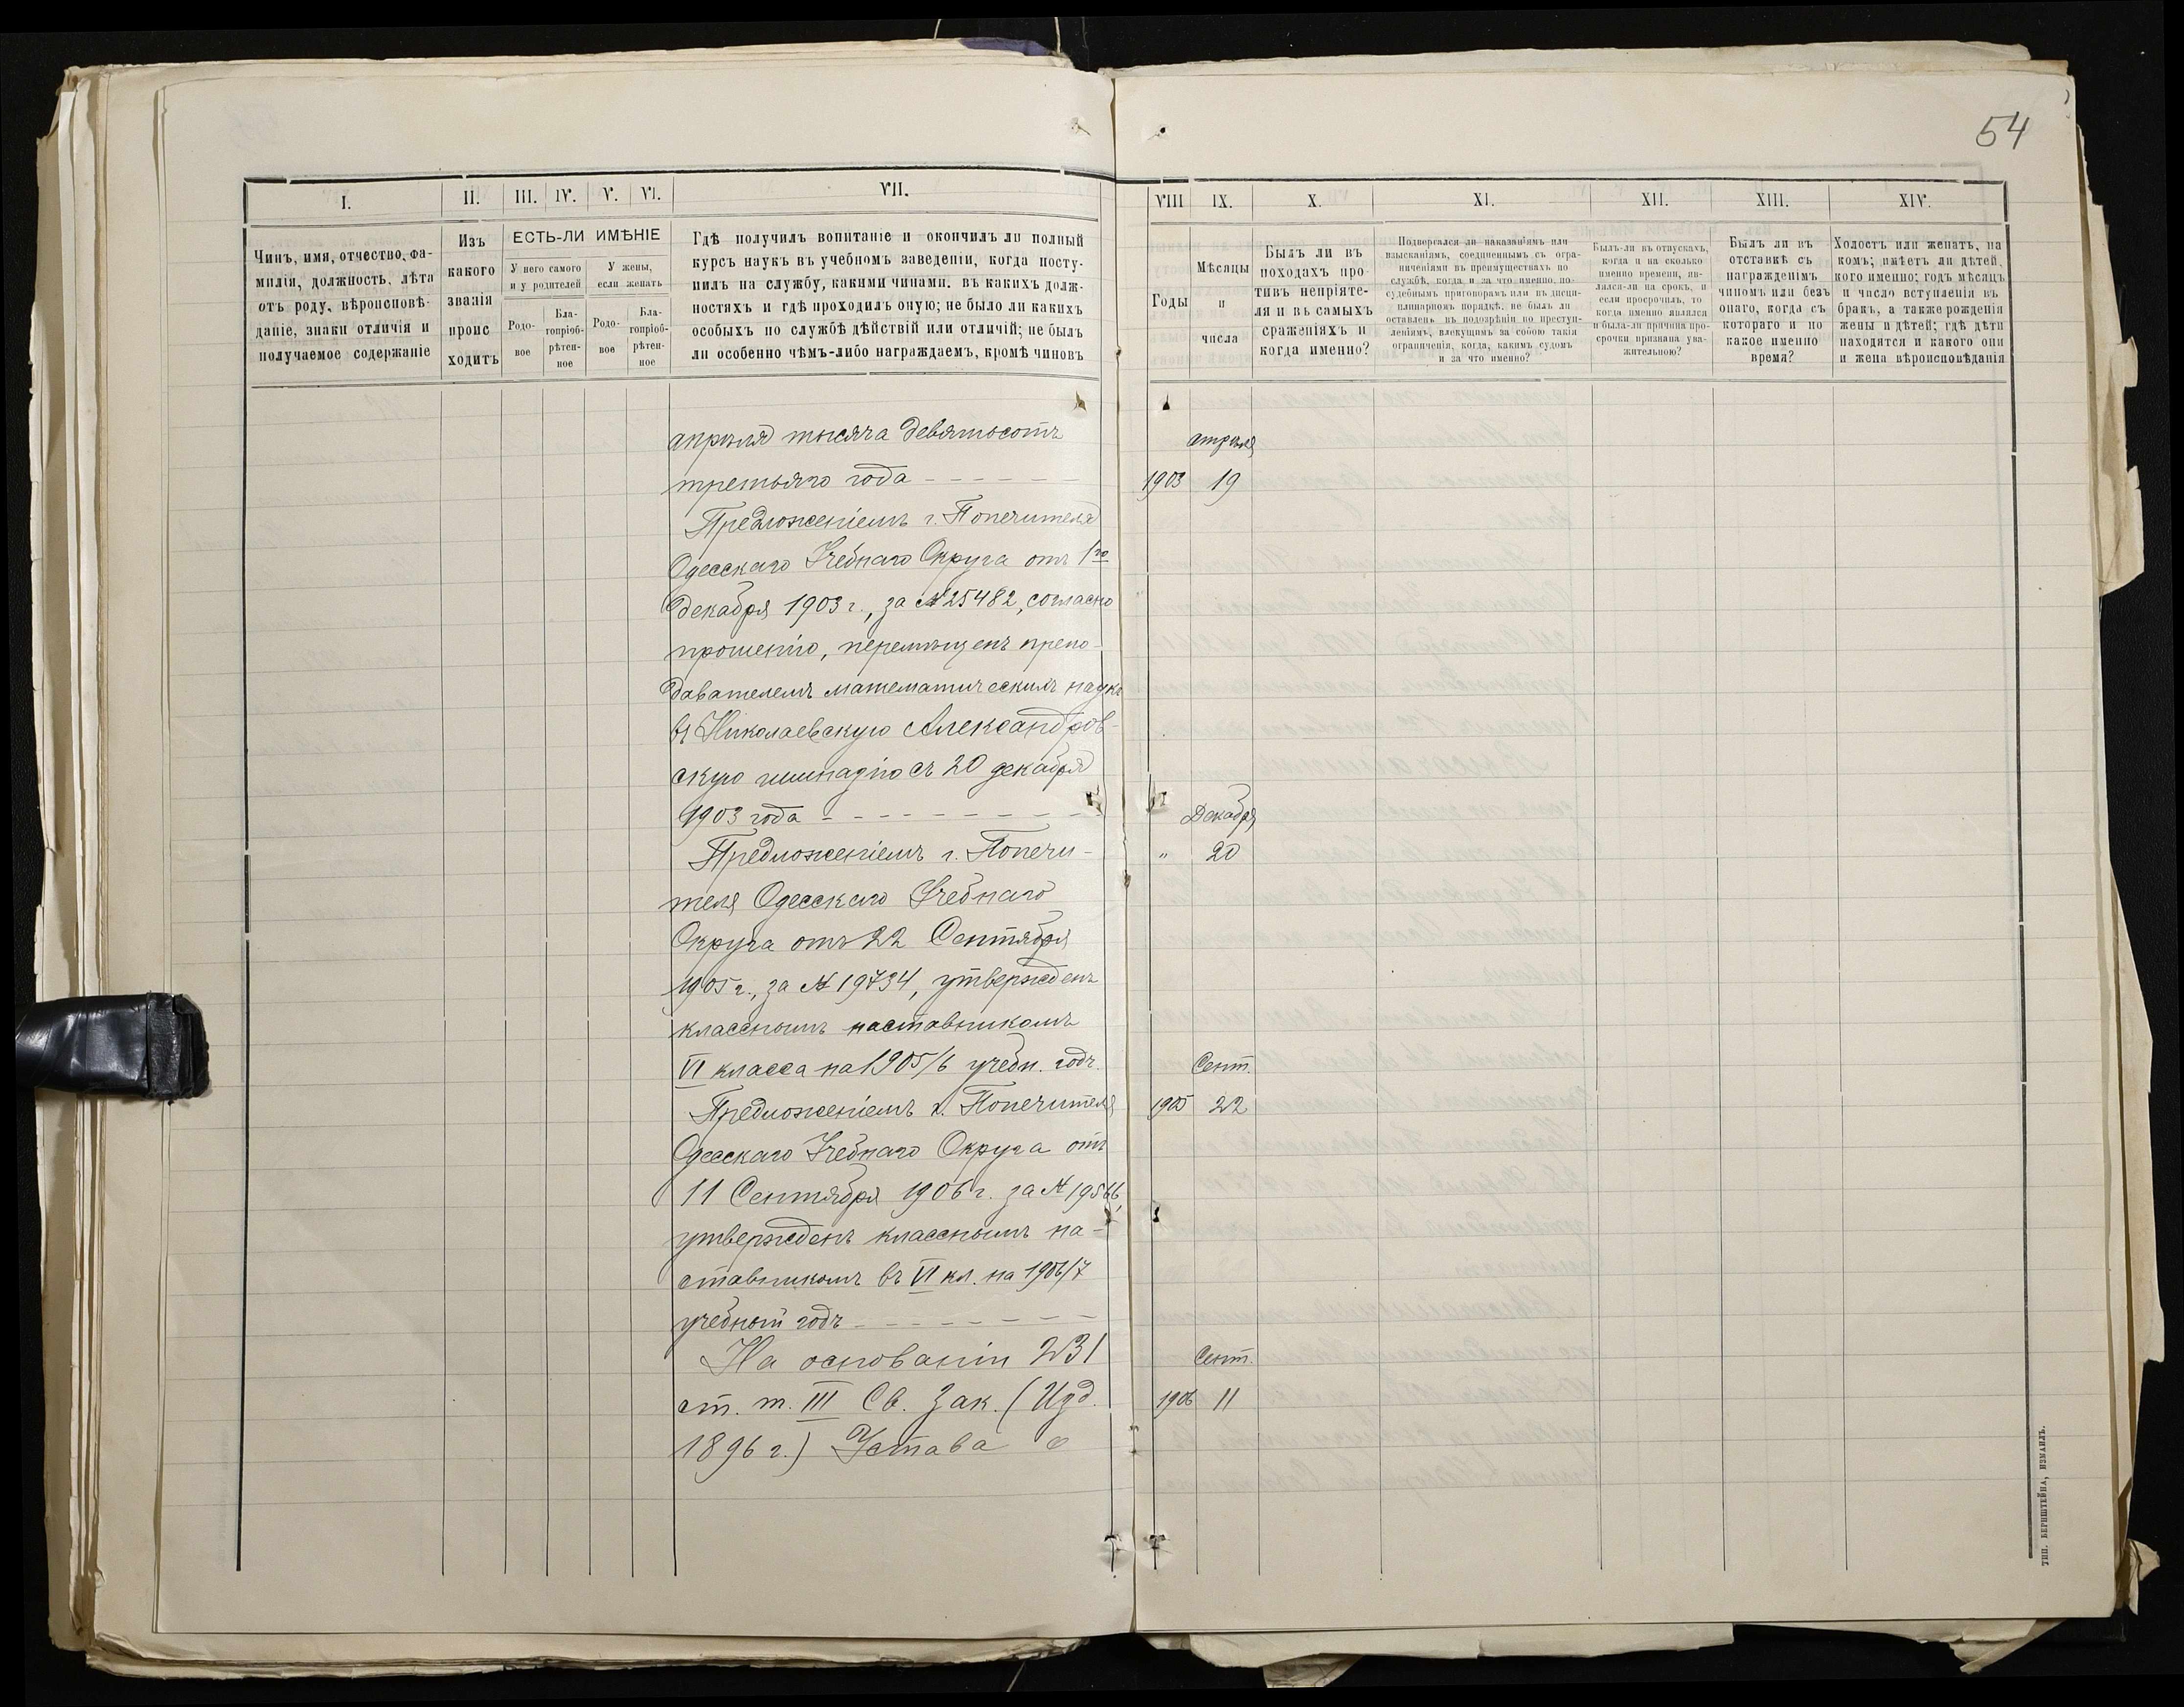 54
I.
II.
III.
IV.
V.
VI.
VII.
VIII
IX.
X.
XI.
XII.
XIII.
XIV.
Чинъ, имя, отчество, фа-
милія, должность, лѣта
отъ роду, вѣроисповѣ-
даніе, знаки отличія и
получаемое содержаніе
Изъ
какого
званія
проис
ходитъ
ЕСТЬ-ЛИ ИМѢНІЕ
У него самого
и у родителей
У жены,
если женатъ
Родо-
вое
Бла-
гопріоб-
рѣтен-
ное
Родо-
вое
Бла-
гопріоб-
рѣтен-
ное
Гдѣ получилъ вопитаніе и окончилъ ли полный
курсъ наукъ въ учебномъ заведеніи, когда посту-
пилъ на службу, какими чинами. въ какихъ долж-
ностяхъ и гдѣ проходилъ оную; не было ли какихъ
особыхъ по службѣ дѣйствій или отличій; не былъ
ли особенно чѣмъ-либо награждаемъ, кромѣ чиновъ
Годы
Мѣсяцы
и
числа
Былъ ли въ
походахъ про-
тивъ непріяте-
ля и въ самыхъ
сраженіяхъ и
когда именно?
Подвергался-ли наказаніямъ или
взысканіямъ, соединеннымъ съ огра-
ниченіями въ преимуществахъ по
службѣ, когда и за что именно, по-
судебнымъ приговорамъ или въ дисци-
плинарномъ порядкѣ; не былъ ли
оставленъ въ подозрѣніи по преступ-
леніямъ, влекущимъ за собою такія
ограниченія, когда, какимъ судомъ
и за что именно?
Былъ-ли въ отпускахъ,
когда и на сколько
именно времени, яв-
лялся-ли на срокъ, и
если просрочилъ, то
когда именно явился
и была-ли причина про-
срочки признана ува-
жительною?
Былъ ли въ
отставкѣ съ
награжденімъ
чиномъ или безъ
онаго, когда съ
котораго и по
какое именно
время?
Холостъ или женатъ, на
комъ; имѣетъ ли дѣтей,
кого именно; годъ мѣсяцъ
и число вступленія въ
бракъ, а также рожденія
жены и дѣтей; гдѣ дѣти
находятся и какого они
и жена вѣроисповѣданія
апрѣля тысяча девятьсотъ
третьяго года
Предложеніемъ г. Попечителя
Одесскаго Учебнаго Округа отъ 1го
декабря 1903 г., за № 25482, согласно
прошенію, перемѣщенъ препо-
давателемъ математическихъ наукъ
въ Николаевскую Александров-
скую гимназію съ 20 декабря
1903 года
Предложеніемъ г. Попечи-
теля Одесскаго Учебнаго
Округа отъ 22 Сентября
1905 г., за № 19734, утвержденъ
класснымъ наставникомъ
VI класса на 1905/6 учебн. годъ.
Предложеніемъ г. Попечителя
Одесскаго Учебнаго Округа отъ
11 Сентября 1906 г. за № 19566,
утвержденъ класснымъ на-
ставникомъ въ VI кл. на 1906/7
учебный годъ
На основаніи 231
ст. т. III Св. Зак. (Изд.
1896 г.) Устава о
апрѣля
1903 19
Декабря
" 20
Сент.
1905 22
Сент.
1906 11
ТИП. БЕРНШТЕЙНА, ИЗМАИЛЪ.